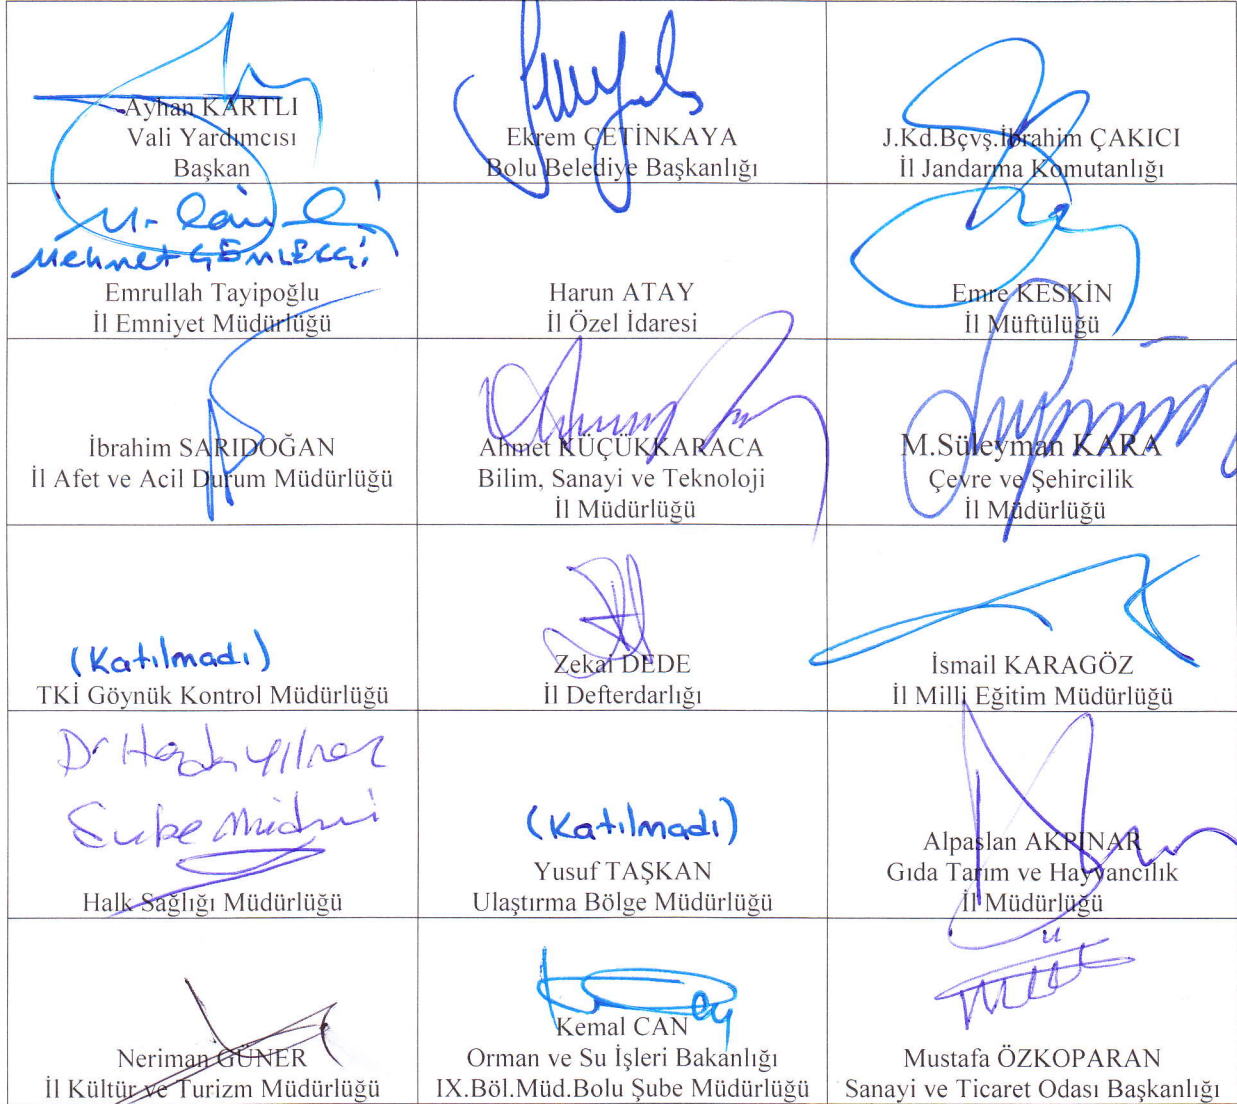 Ayhan KARTLI
Vali Yardımcısı
Başkan
Ekrem ÇETİNKAYA
Bolu Belediye Başkanlığı
J.Kd.Bçvş.İbrahim ÇAKICI
İl Jandarma Komutanlığı
Mehmet GÖMLEKÇİ
Emrullah Tayipoğlu
İl Emniyet Müdürlüğü
Harun ATAY
İl Özel İdaresi
Emre KESKİN
İl Müftülüğü
İbrahim SARIDOĞAN
İl Afet ve Acil Durum Müdürlüğü
Ahmet KÜÇÜKKARACA
Bilim, Sanayi ve Teknoloji
İl Müdürlüğü
M.Süleyman KARA
Çevre ve Şehircilik
İl Müdürlüğü
(Katılmadı)
TKİ Göynük Kontrol Müdürlüğü
Zekai DEDE
İl Defterdarlığı
İsmail KARAGÖZ
İl Milli Eğitim Müdürlüğü
Dr
Şube Müdürü
Halk Sağlığı Müdürlüğü
(Katılmadı)
Yusuf TAŞKAN
Ulaştırma Bölge Müdürlüğü
Alpaslan AKPINAR
Gıda Tarım ve Hayvancılık
İl Müdürlüğü
Neriman GÜNER
İl Kültür ve Turizm Müdürlüğü
Kemal CAN
Orman ve Su İşleri Bakanlığı
IX.Böl.Müd.Bolu Şube Müdürlüğü
Mustafa ÖZKOPARAN
Sanayi ve Ticaret Odası Başkanlığı